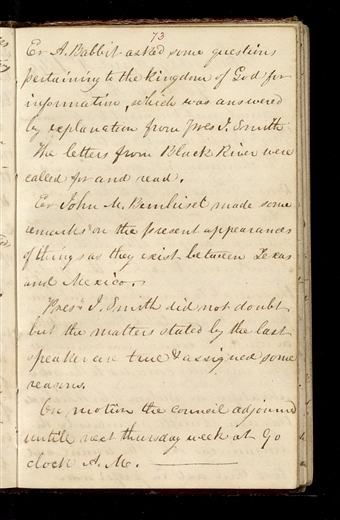 73
Er A. Babbit asked some questions
pertaining to the kingdom of God for
information, which was answered
by explanation from Pres J. Smith
The letters from Black River were
called for and read.
Er John M. Bernhisel made some
remarks on the present appearances
of things as they exist between Texas
and Mexico.
Pres J. Smith did not doubt
but the matters stated by the last
speaker are true & assigned some
reasons.
On motion the council adjourned
untill next thursday week at 9 o
clock A. M.